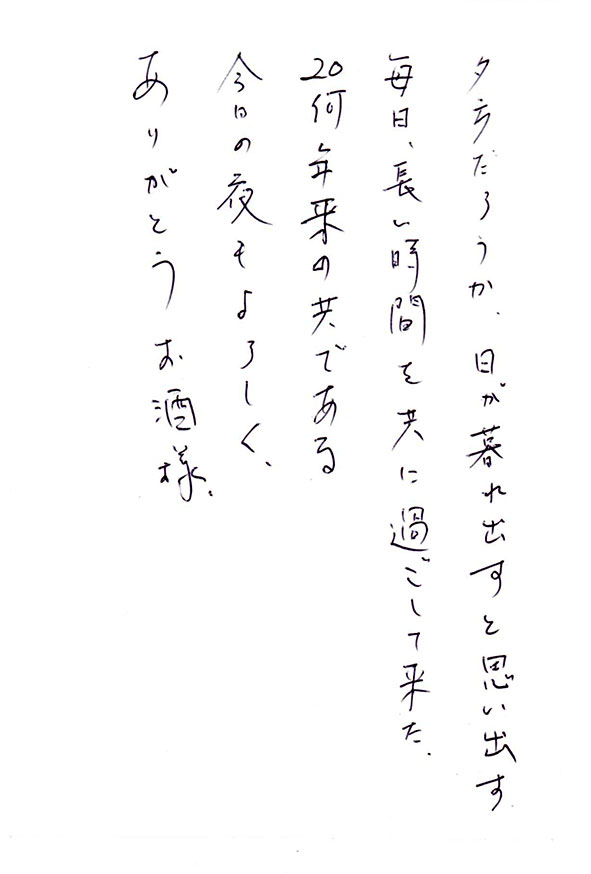 夕方だろうか、日が暮れ出すと思い出す
毎日、長い時間を共に過ごして来た.
20何年来の共である
今日の夜もよろしく、
ありがとうお酒様.